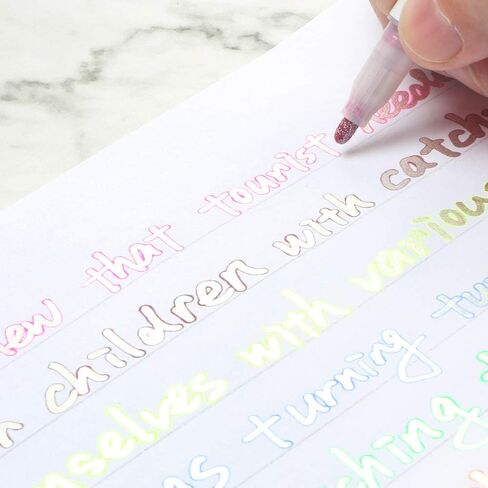 new that tourist need
children with catch
mselves with various
ns turning tu
shing